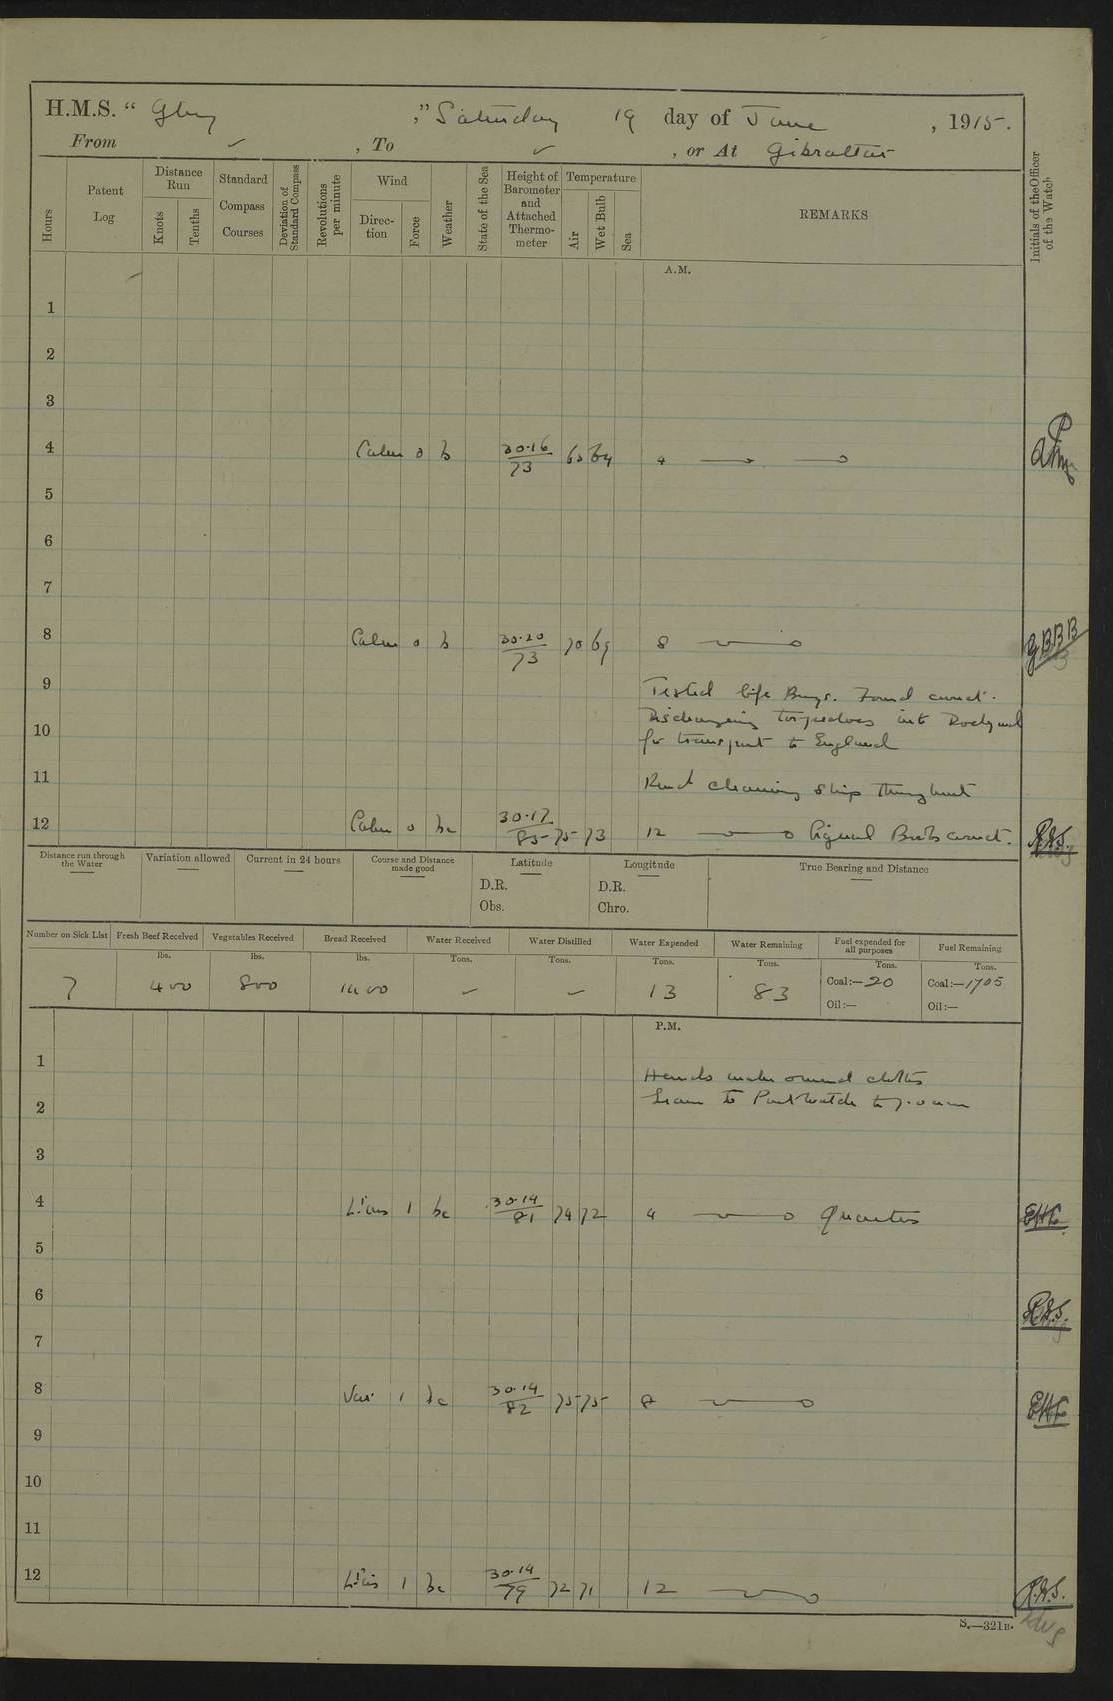 H.M.S. " Glory " Saturday 19 day of June , 1915.
From ✓ , To ✓ , or At Gibraltar
Hours
Patent Log
Distance Run
Knots
Tenths
Standard Compass Courses
Deviation of Standard Compass
Revolutions per minute
Wind
Direc-tion
Force
Weather
State of the Sea
Height of Barometer and Attached Thermo-meter
Temperature
Air
Wet Bulb
Sea
REMARKS
Initials of the Officer of the Watch
A.M.
1
2
3
4 Calm 0 b 30.16 73 69 4
5
6
7
8 Calm 0 b 30.20 73 70 69 8 GBBB
9 Tested life Buoys. Found correct.
Discharging torpedoes into Dockyard
10 for transport to England
11 Hands cleaning Ship throughout
12 Calm 0 bc 30.17 85 75 73 12 Signal Books correct. R.H.S.
Distance run through the Water
Variation allowed
Current in 24 hours
Course and Distance made good
Latitude
D.R.
Obs.
Longitude
D.R.
Chro.
True Bearing and Distance
Number on Sick List
Fresh Beef Received
Vegetables Received
Bread Received
Water Received
Water Distilled
Water Expended
Water Remaining
Fuel expended for all purposes
Fuel Remaining
lbs. lbs. lbs. Tons. Tons. Tons. Tons. Tons. Tons.
7 400 800 1400 – – 13 83 Coal:—20 Coal:—1705
Oil:— Oil:—
P.M.
1 Hands make & mend clothes
2 Leave to Port Watch to 7.0 am
3
4 Lt airs 1 bc 30.14 81 74 72 4 Quarters EHC
5
6 R.H.S.
7
8 Var 1 bc 30.14 82 75 75 8 EHC
9
10
11
12 Lt airs 1 bc 30.14 79 72 71 12 R.H.S.
S.—321B.